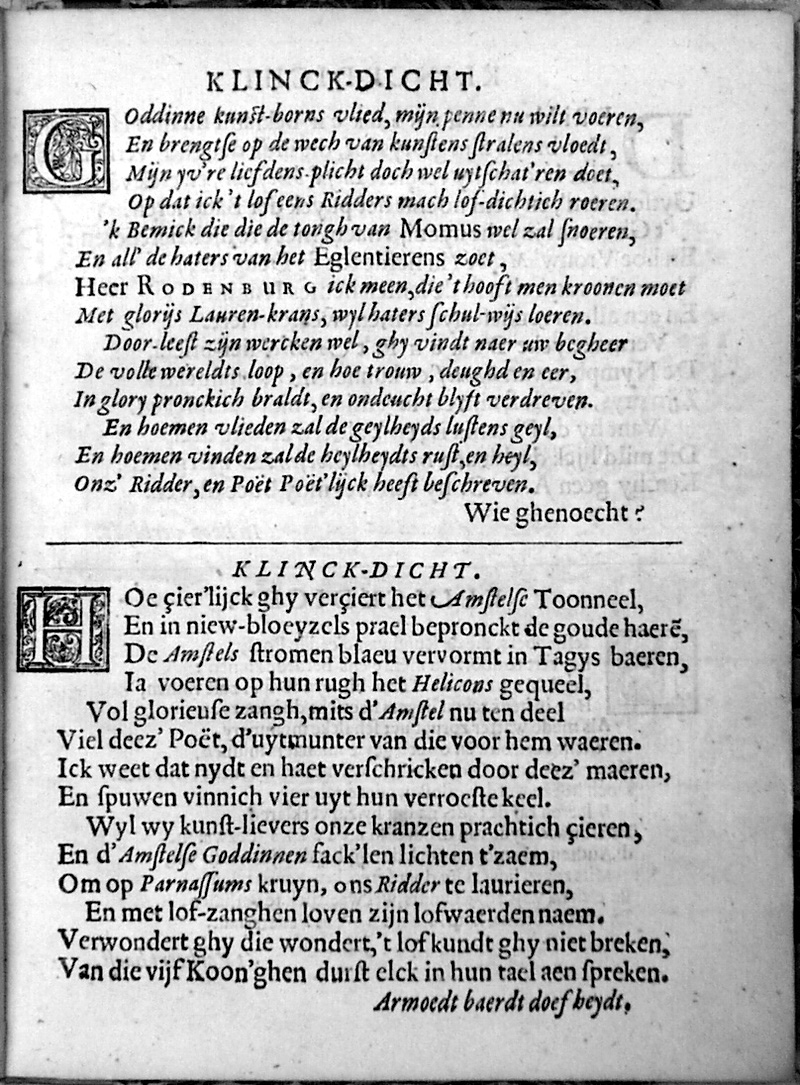 KLINCK-DICHT.
GOddinne kunſt-borns vlied, mijn penne nu wilt voeren,
En brengtſe op de wech van kunſtens ſtralens vloedt,
Mijn yv're liefdens-plicht doch wel uytſchat'ren doet,
Op dat ick 't lof eens Ridders mach lof-dichtich roeren.
'k Bemick die die de tongh van Momus wel zal ſnoeren,
En all' de haters van het Eglentierens zoet,
Heer RODENBURG ick meen, die 't hooft men kroonen moet
Met glorijs Lauren-krans, wyl haters ſchul-wijs loeren.
Door-leeſt zijn wercken wel, ghy vindt naer uw begheer
De volle wereldts loop, en hoe trouw, deughd en eer,
In glory pronckich braldt, en ondeucht blyft verdreven.
En hoemen vlieden zal de geylheyds luſtens geyl,
En hoemen vinden zal de heylheydts ruſt, en heyl,
Onz' Ridder, en Poët Poët'lijck heeft beſchreven.
Wie ghenoecht?
KLINCK-DICHT.
HOe çier'lijck ghy verçiert het Amſtelſe Toonneel,
En in niew-bloeyzels prael bepronckt de goude haerẽ,
De Amſtels ſtromen blaeu vervormt in Tagys baeren,
Ia voeren op hun rugh het Helicons gequeel,
Vol glorieuſe zangh, mits d'Amſtel nu ten deel
Viel deez' Poët, d'uytmunter van die voor hem waeren.
Ick weet dat nydt en haet verſchricken door deez' maeren,
En ſpuwen vinnich vier uyt hun verroeſte keel.
Wyl wy kunſt-lievers onze kranzen prachtich çieren,
En d'Amſtelſe Goddinnen fack'len lichten t'zaem,
Om op Parnaſſums kruyn, ons Ridder te laurieren,
En met lof-zanghen loven zijn lofwaerden naem.
Verwondert ghy die wondert, 't lof kundt ghy niet breken,
Van die vijf Koon'ghen durſt elck in hun tael aen ſpreken.
Armoedt baerdt doefheydt.